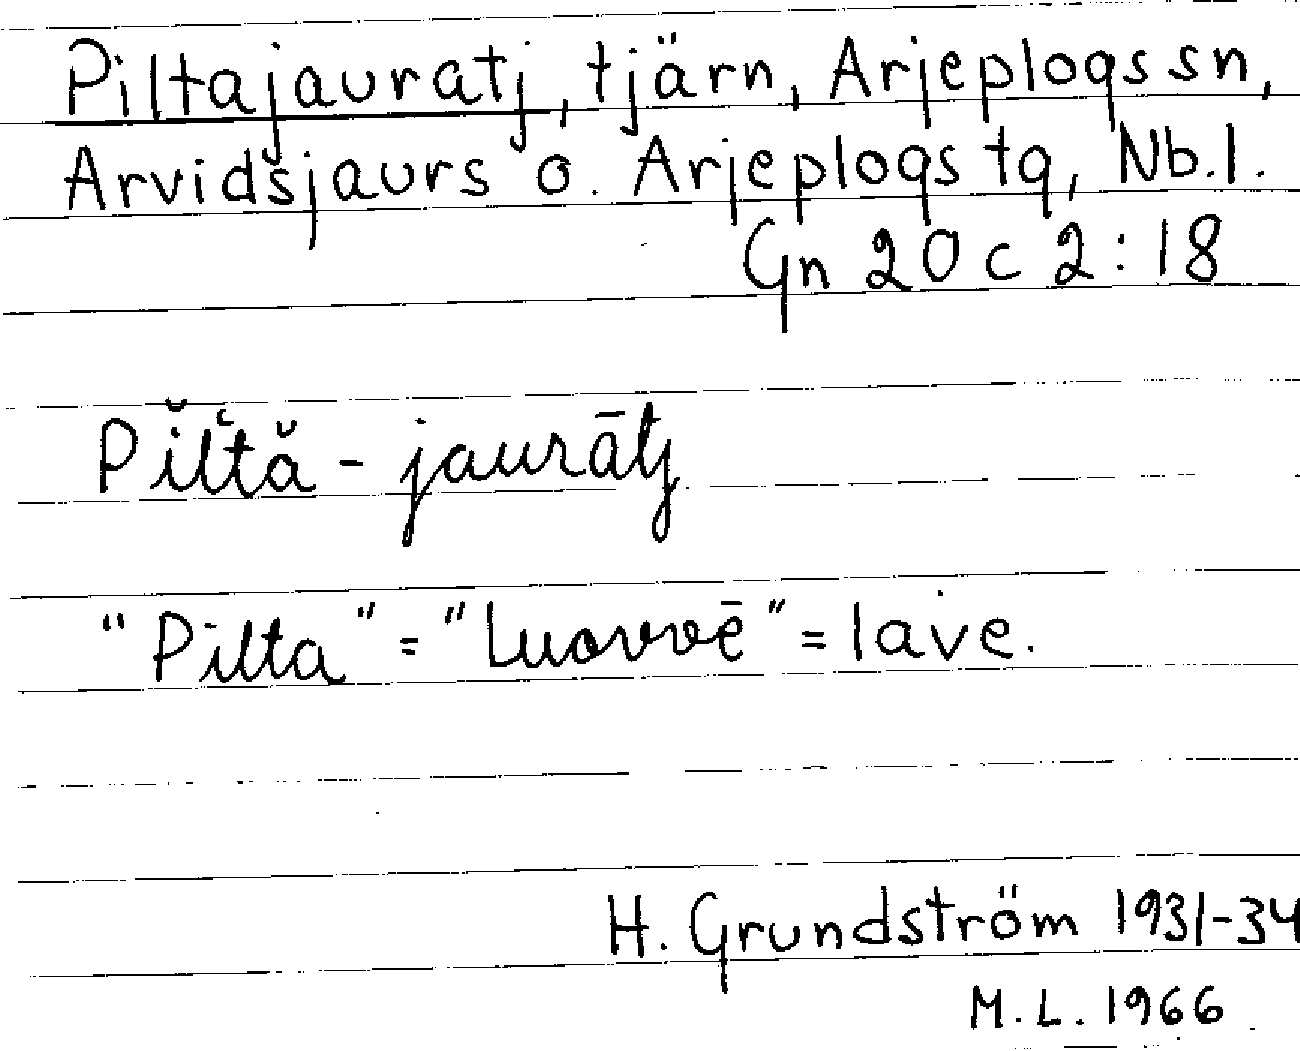 Piltajauratj, tjärn, Arjeplogs sn,
Arvidsjaurs o. Arjeplogs tg, Nb.l.
Gn 20 c 2:18
Pĭltă - jaurātj
"Pilta" = "Luovvē" = lave.
H. Grundström 1931-34
M.L. 1966